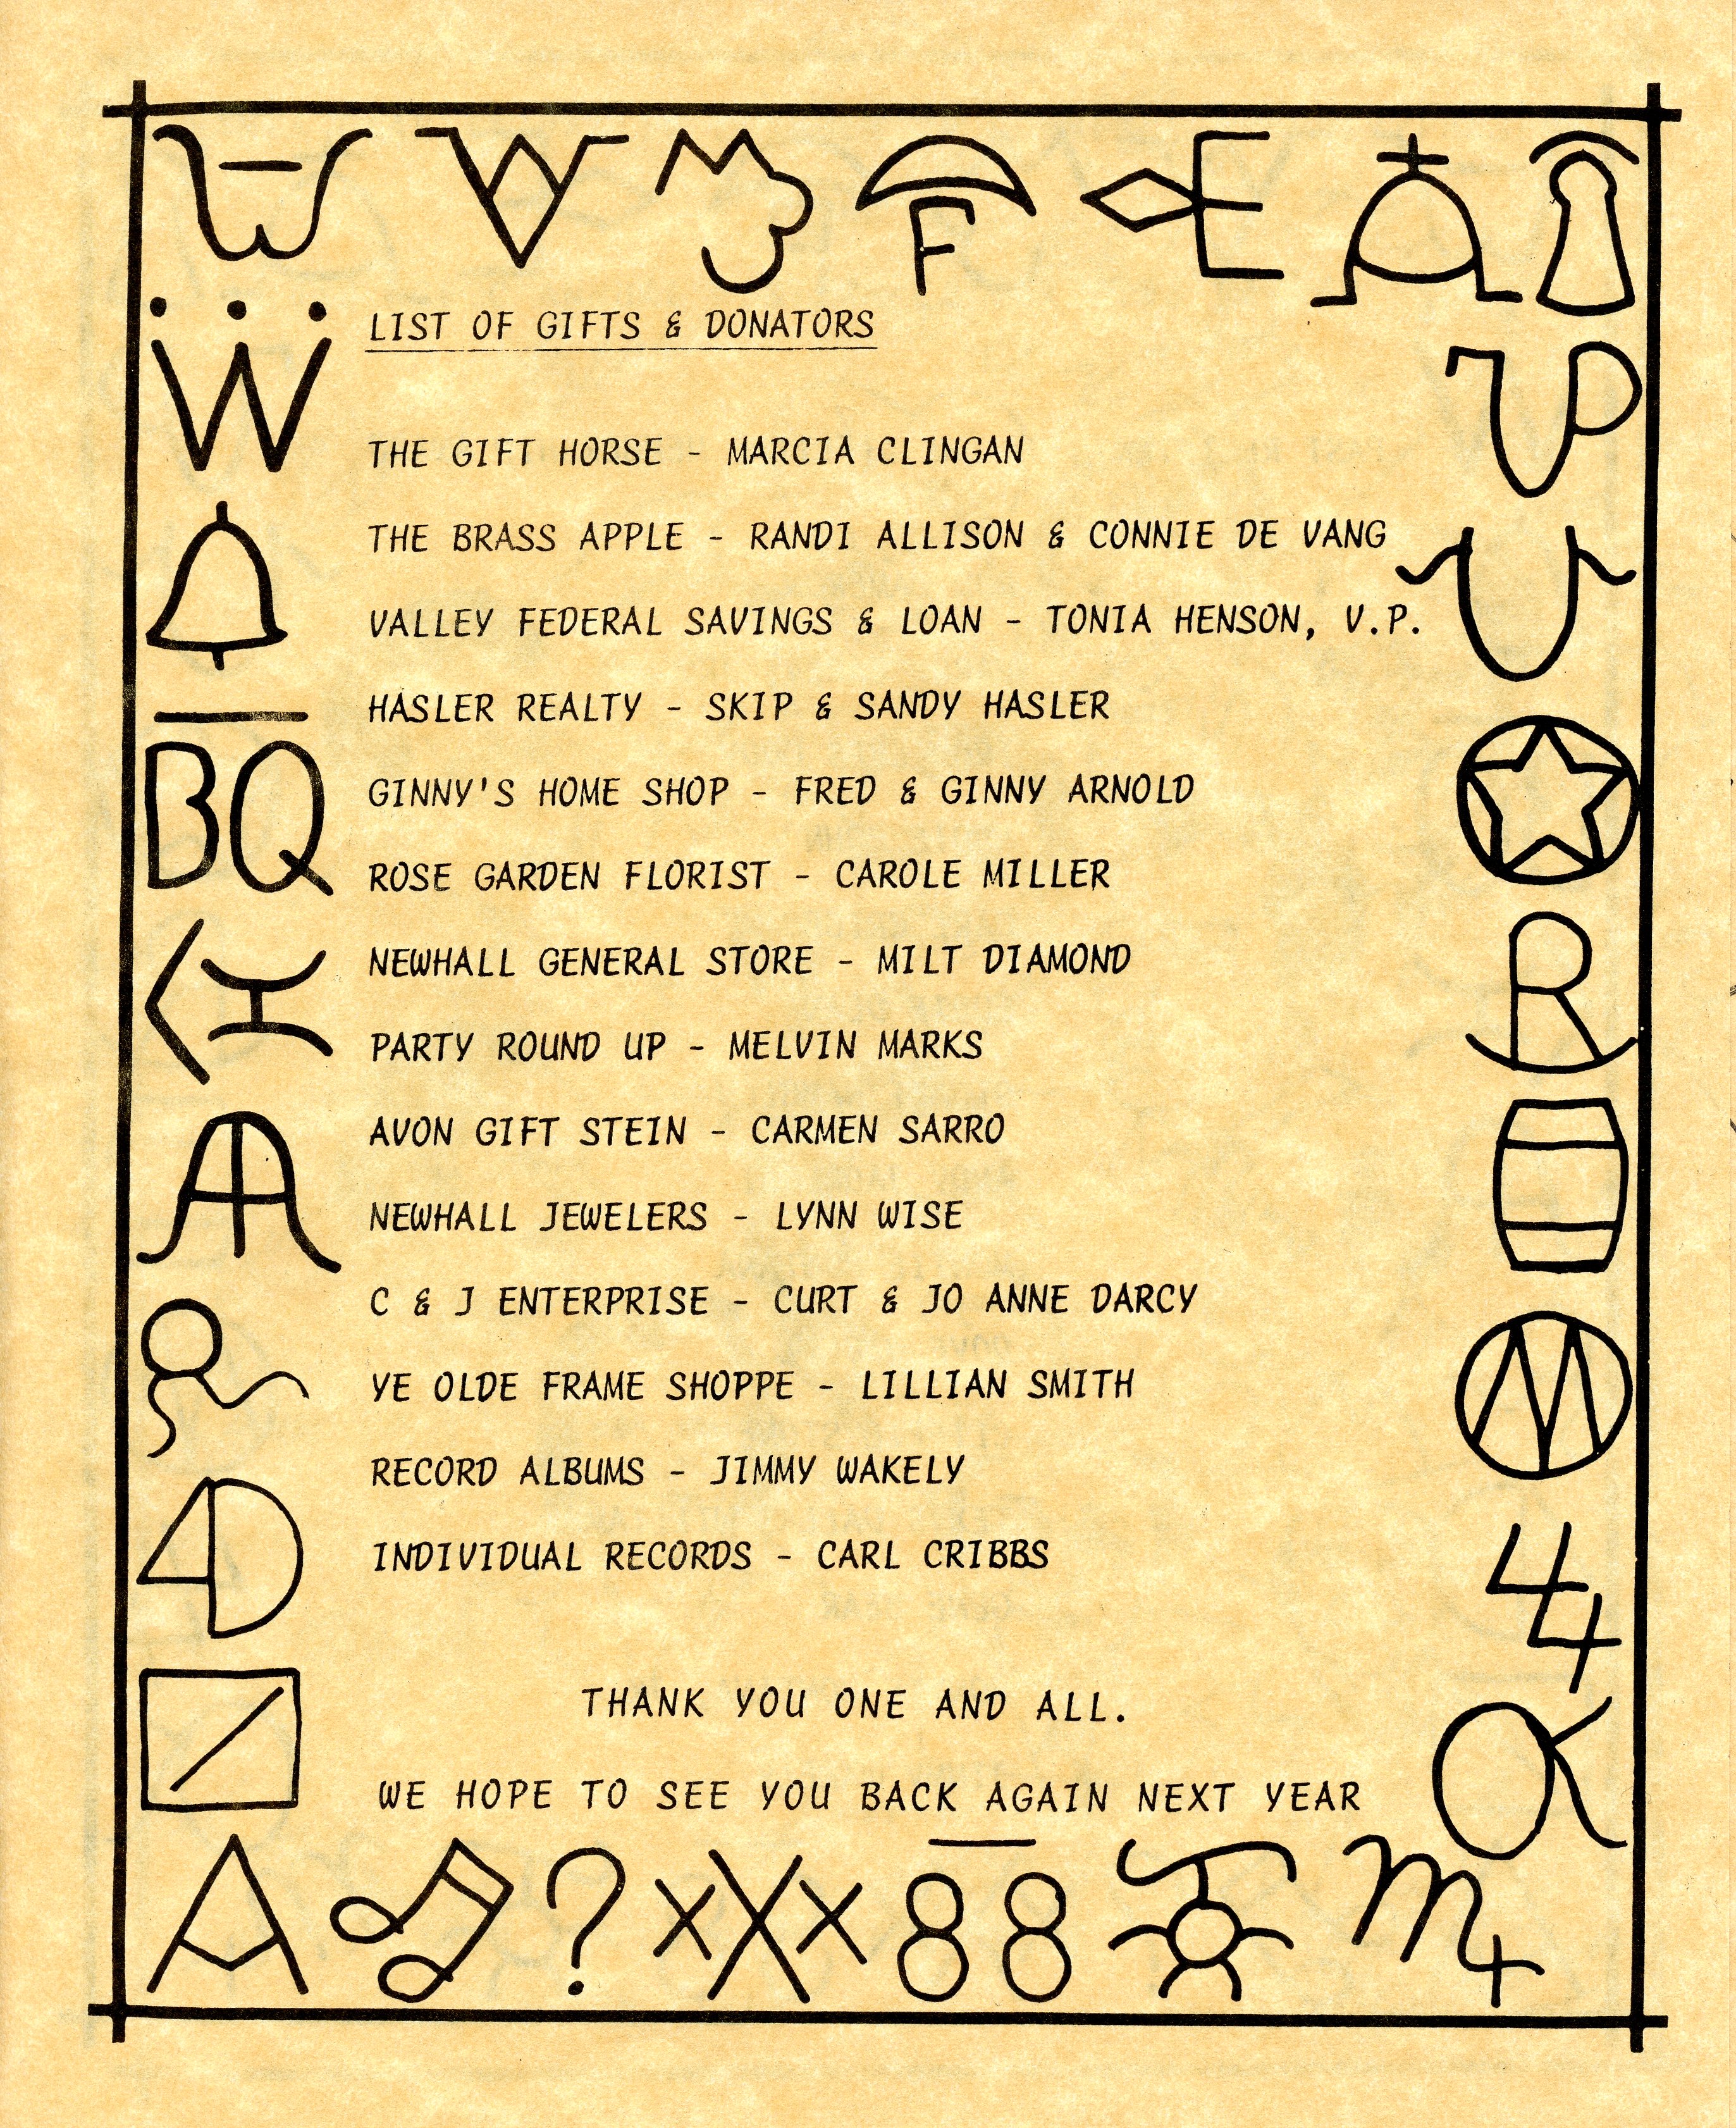 LIST OF GIFTS & DONATORS
THE GIFT HORSE - MARCIA CLINGAN
THE BRASS APPLE - RANDI ALLISON & CONNIE DE VANG
VALLEY FEDERAL SAVINGS & LOAN - TONIA HENSON, V.P.
HASLER REALTY - SKIP & SANDY HASLER
GINNY'S HOME SHOP - FRED & GINNY ARNOLD
ROSE GARDEN FLORIST - CAROLE MILLER
NEWHALL GENERAL STORE - MILT DIAMOND
PARTY ROUND UP - MELVIN MARKS
AVON GIFT STEIN - CARMEN SARRO
NEWHALL JEWELERS - LYNN WISE
C & J ENTERPRISE - CURT & JO ANNE DARCY
YE OLDE FRAME SHOPPE - LILLIAN SMITH
RECORD ALBUMS - JIMMY WAKELY
INDIVIDUAL RECORDS - CARL CRIBBS
THANK YOU ONE AND ALL.
WE HOPE TO SEE YOU BACK AGAIN NEXT YEAR